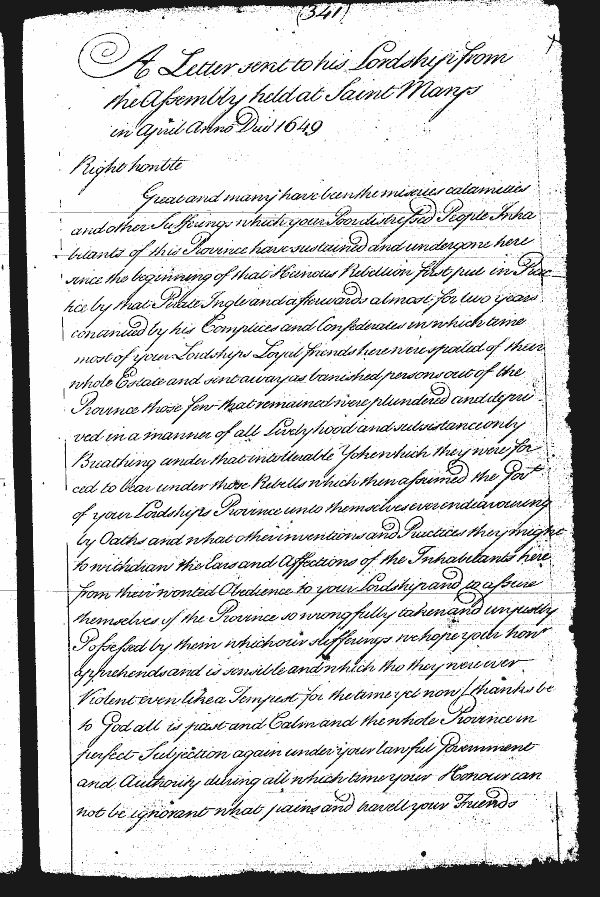 (341)
A Letter sent to his Lordship from
the Assembly held at Saint Marys
in April Anno Dni 1649
Right honble
Great and many have been the miseries calamities
and other Sufferings which your Poor distressed People Inha
bitants of this Province have sustained and undergone here
since the beginning of that Heinous Rebellion first put in Prac
tice by that Pirate Ingle and afterwards almost for two years
continued by his Complices and Confederates in which time
most of your Lordships Loyal friends here were spoiled of their
whole Estate and sent away as banished persons out of the
Province those few that remained were plundered and depri
ved in a manner of all Livelyhood and subsistance only
Breathing under that intollerable Yoke which they were for
ced to bear under those Rebells which then assumed the Govt
of your Lordships Province unto themselves ever endeavouring
by Oaths and what other inventions and Practices they might
to withdraw the Ears and Affections of the Inhabitants here
from their wonted Obedience to your Lordship and to assure
themselves of the Province so wrongfully taken and unjustly
Possessed by them which our sufferings we hope your honr
apprehends and is sensible and which tho they were ever
Violent even like a Tempest for the time yet now (thanks be
to God all is past and Calm and the whole Province in
perfect Subjection again under your lawful Government
and Authority during all which time your Honour can
not be ignorant what pains and travell your Friends